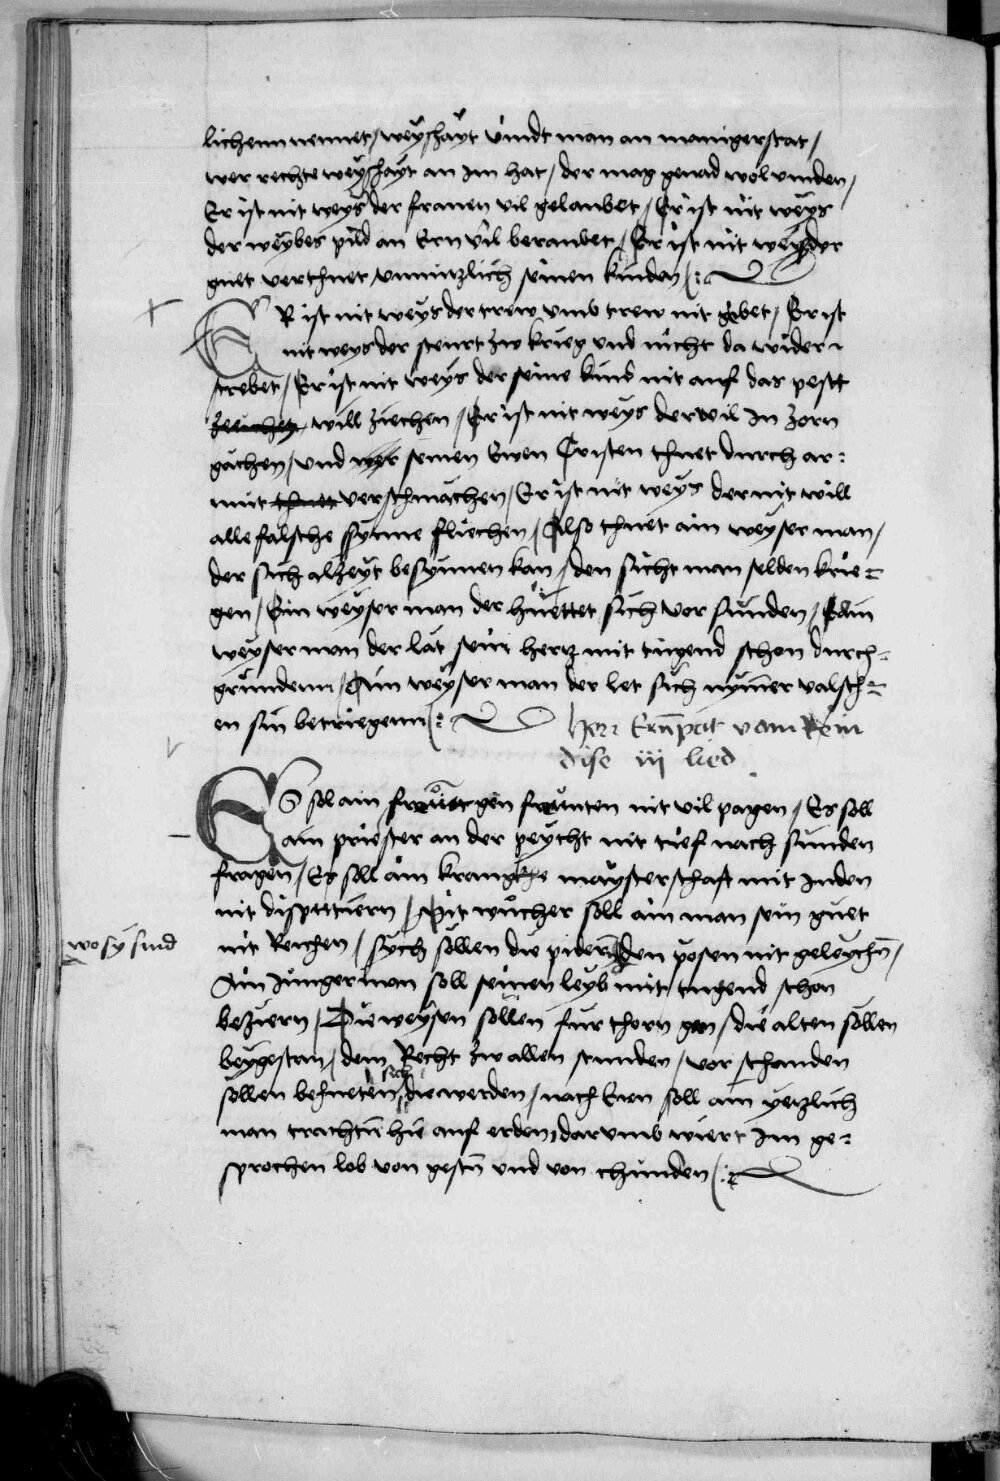 lichenn nennet / weyshayt vindt man an maniger stat /
wer rechte weyshayt an im hat / der mag genad wol vinden /
Er ist nit weys der frauen vil gelaubet / Er ist nit weys
der weybes pild an Ern vil beraubet / Er ist nit weys der
guet verthuet vnnützlich seinen kinden /:
ER ist nit weys der trew vmb trew nit gebet / Er ist
nit weys der steurt zw krieg vnd nicht da wider
strebet / Er ist nit weys der seine kind nit auf das pest
zeuchen will ziechen / Er ist nit weys der wil In zorn
gachen / vnd wer seinen Eben Cristen thuet durch ar:
mut thuet verschmächen / Er ist nit weys der nit will
alle falsche synne fliechen / Also thuet ain weyser man /
der sich alzeyt besynnen kan / den sicht man selden krie=
gen / Ein weyser man der huettet sich vor sunden / Ain
weyser man der lat sein hertz mit tugend schon durch=
gründenn / Ain weyser man der let sich nymer valsch=
en sin betriegenn /:
her Ernpat vam Rein
dise iij lied
ES sol ain freunt gen freunten nit vil pagen / Es soll
ain priester an der peycht nit tief nach sunden
fragen / Es soll ain krangkhe maysterschaft mit Juden
nit dispttuiern / Mit wucher soll ain man sein guet
nit Reichen / sych sollen die pidern den posen nit geleychn /
wo sy sind
Ain Junger man soll seinen leyb mit tugend schon
beziern / Die weysen sollen fur thorn gen / die alten sollen
beygestan / dem Recht zw allen stunden / vor schanden
sollen behueten sich die werden / nach Eren soll ain yetzlich
man trachtn hie auf erden, darumb wiert Im ge=
sprochen lob von gestn vnd von chunden /: